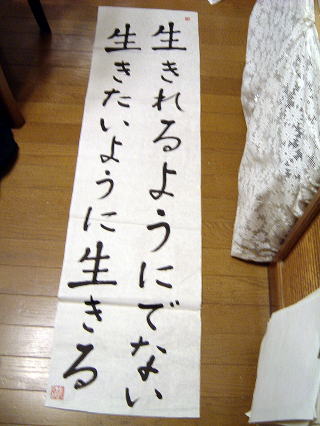 生きれるようにでない
生きたいように生きる